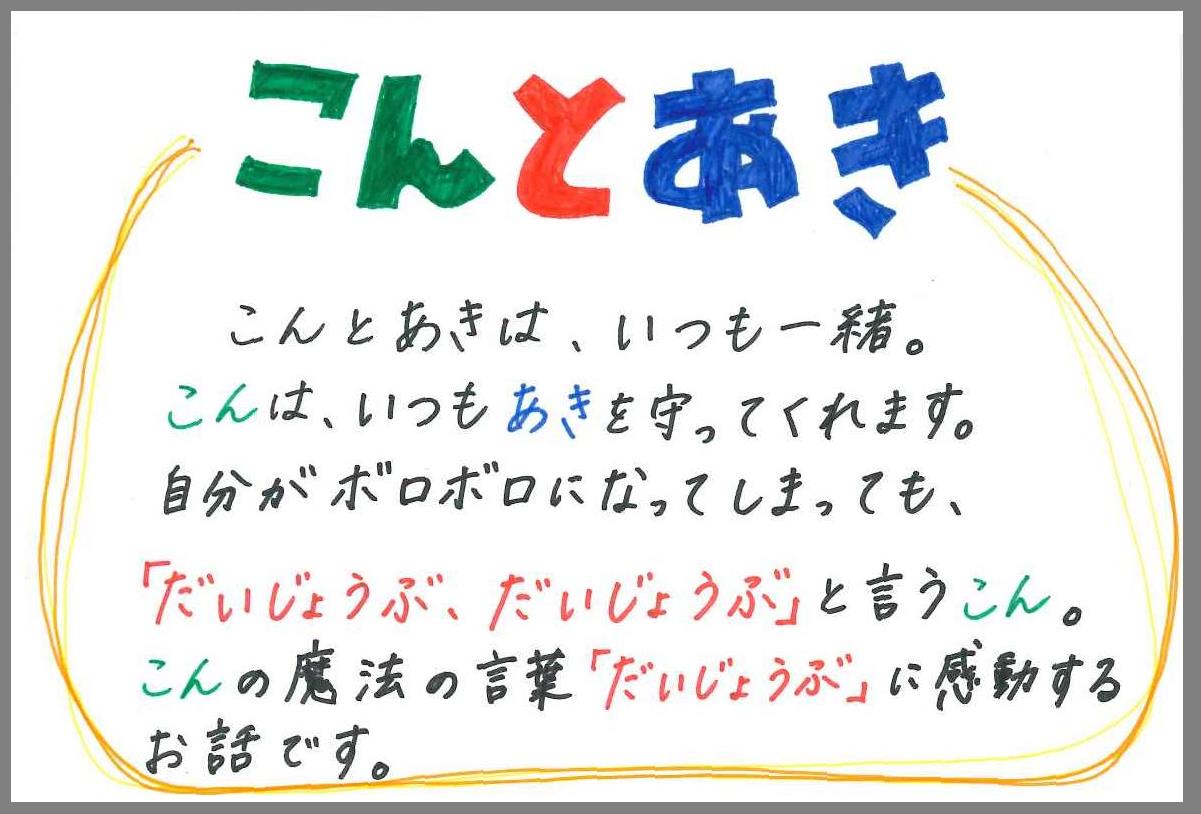 こんとあき
こんとあきは、いつも一緒。
こんは、いつもあきを守ってくれます。
自分がボロボロになってしまっても、
「だいじょうぶ、だいじょうぶ」と言うこん。
こんの魔法の言葉「だいじょうぶ」に感動する
お話です。